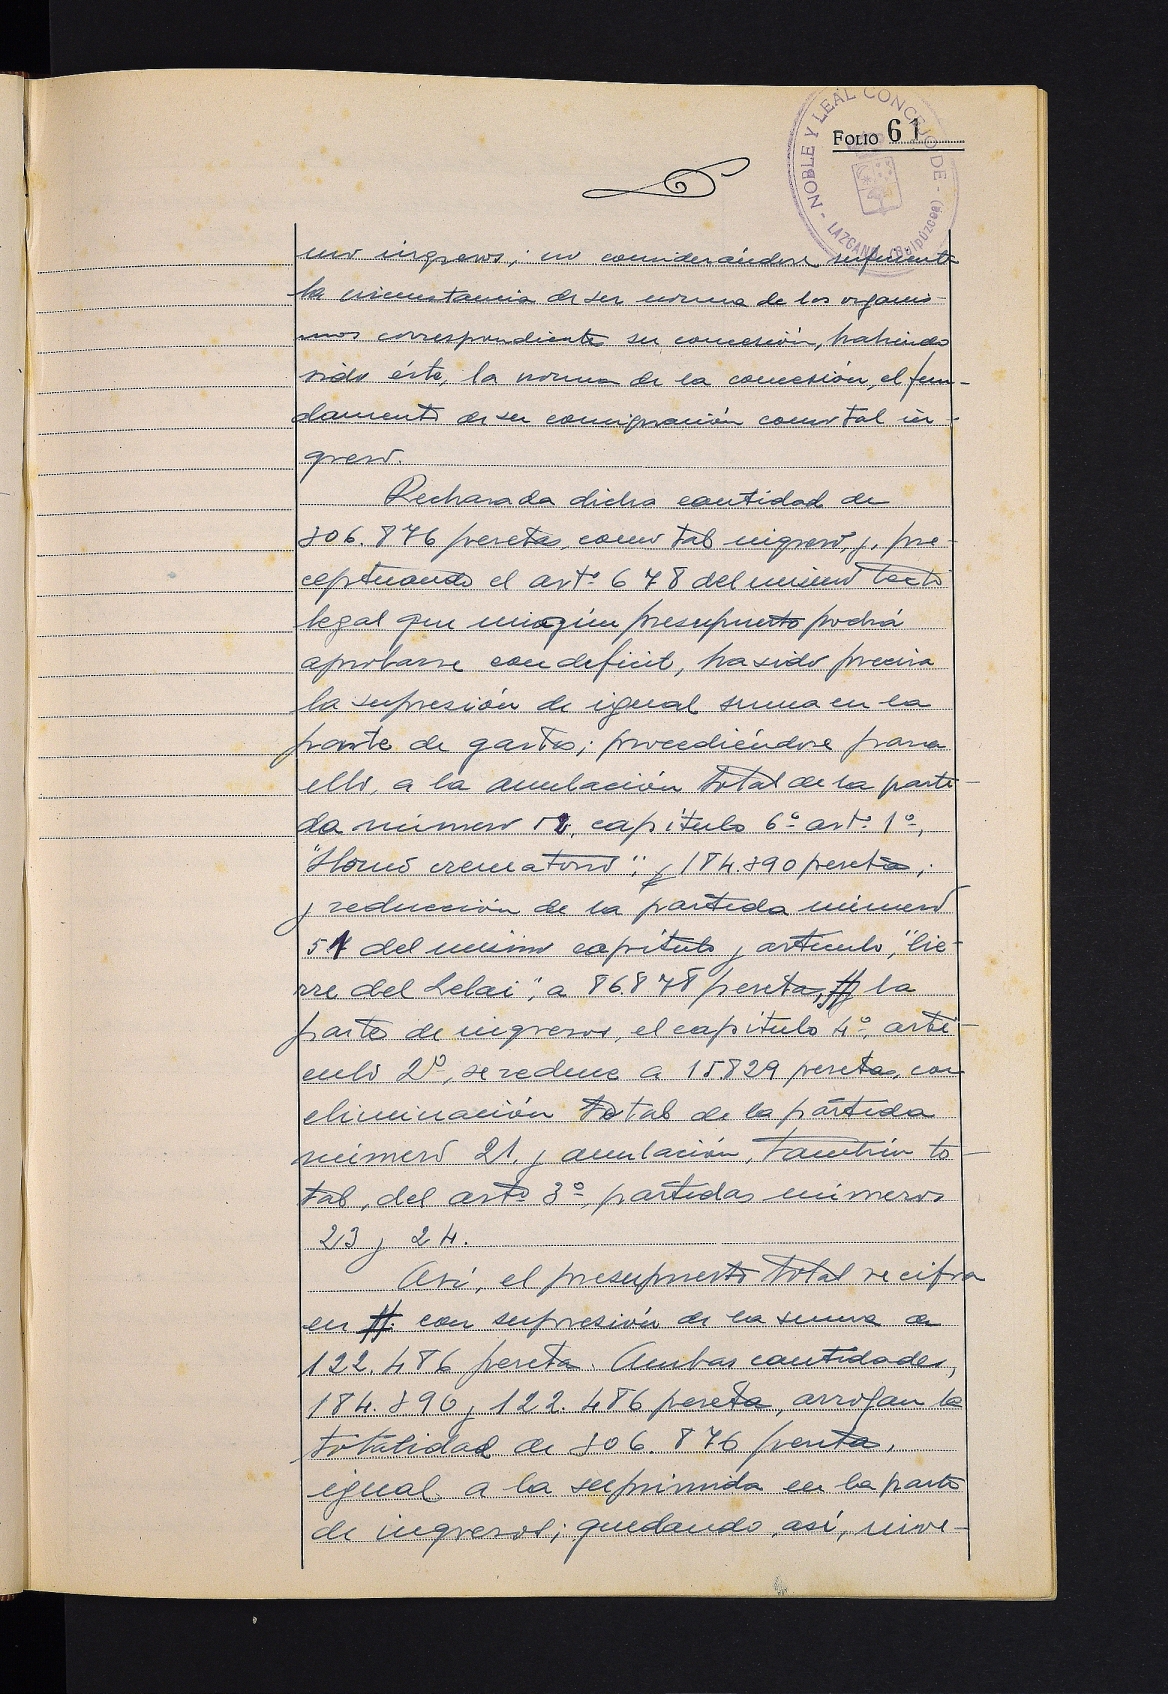 FOLIO 61
- NOBLE Y LEAL CONCEJO DE -
LAZCANO (Guipúzcoa)
mo ingresos; no considerándose suficiente
la circunstancia de ser norma de los organis-
mos correspondiente su concesión, habiendo
sido ésta, la norma de la concesión, el fun-
damento de su consignación como tal in-
greso.
Rechazada dicha cantidad de
306.876 pesetas, como tal ingreso, y, pre-
ceptuando el artº 678 del mismo texto
legal que ningún presupuesto podrá
aprobarse con deficit, ha sido precisa
la supresión de igual suma en la
parte de gastos; procediéndose para
ello, a la anulación total de la parti-
da número 52, capítulo 6º artº 1º,
"Horno crematorio"; 184.390 pesetas;
y reducción de la partida número
51 del mismo capítulo y artículo, "Cie-
rre del Lelai", a 86.878 pesetas, la
parte de ingresos, el capítulo 4º, artí-
culo 2º, se reduce a 15829 pesetas, con
eliminación total de la pártida
número 21, y anulación, también to-
tal, del artº 3º, partidas números
23 y 24.
Así, el presupuesto total se cifra
en con supresión de la suma de
122.486 pesetas. Ambas cantidades,
184.390 y 122.486 pesetas, arrojan la
totalidad de 306.876 pesetas,
igual a la suprimida en la parte
de ingresos; quedando, así, nive-